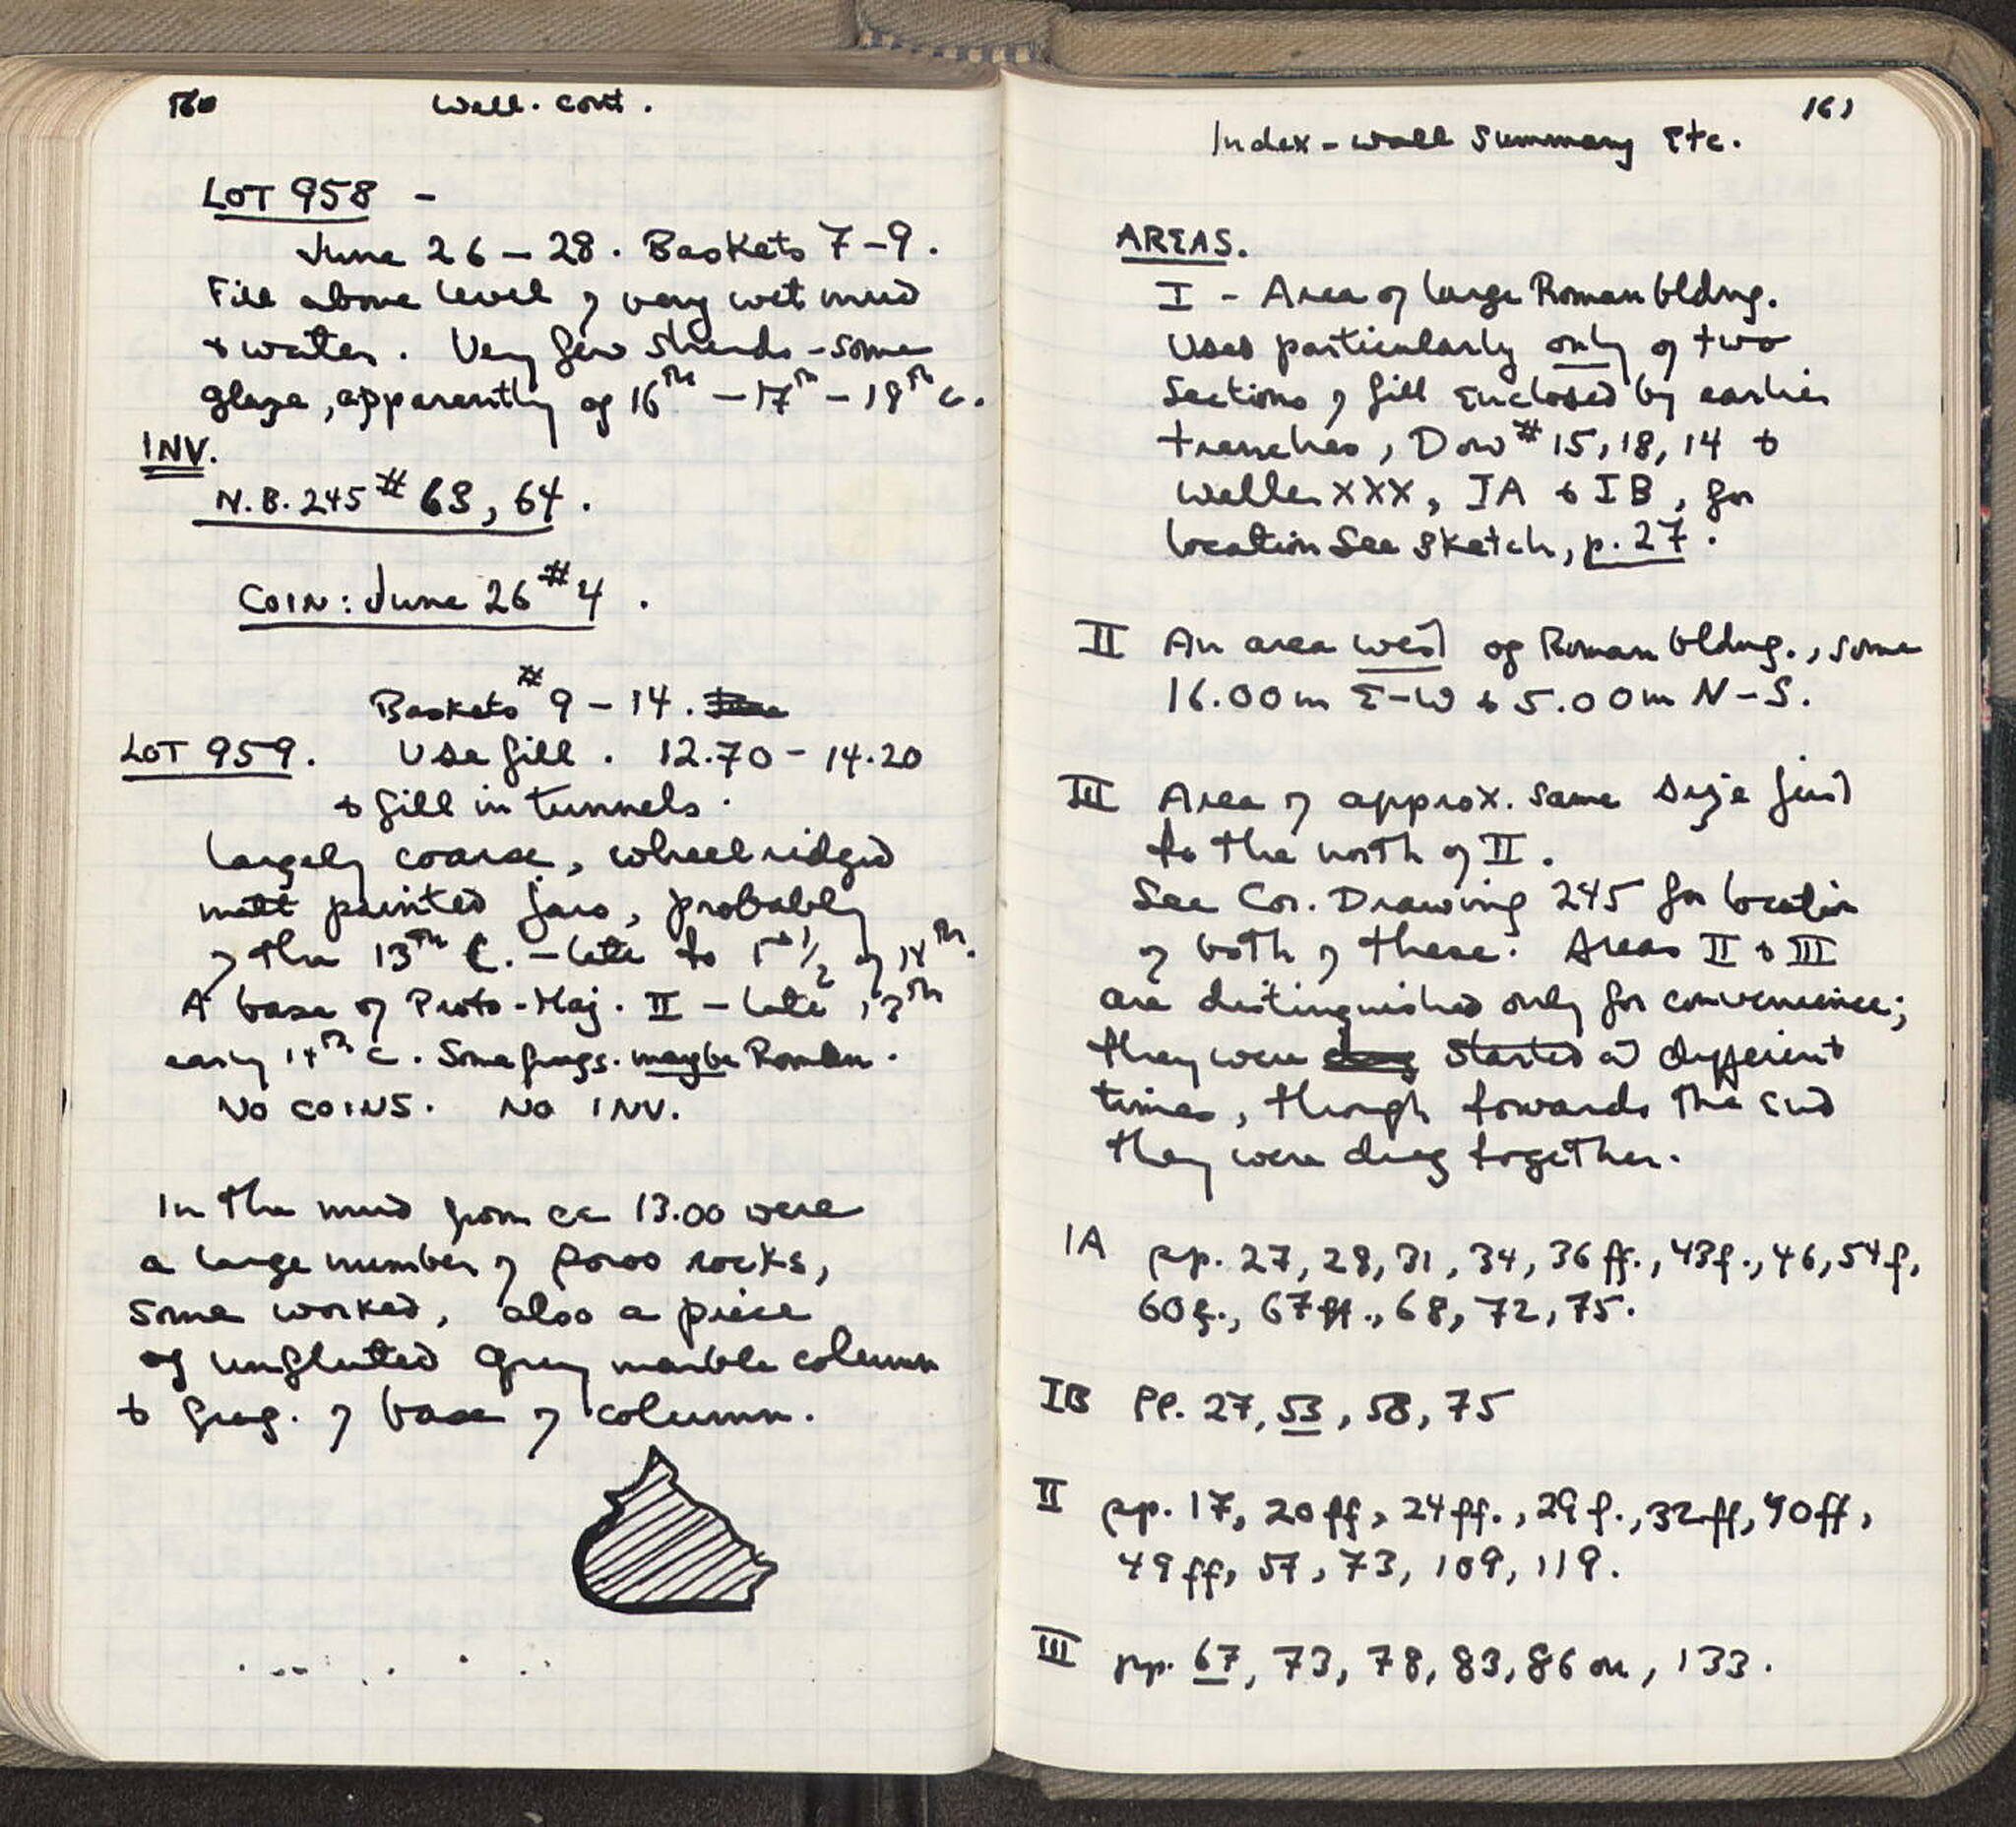 160
Well. cont.
LOT 958 -
June 26 - 28. Baskets 7-9.
Fill above level of very wet mud
& water. Very few sherds - some
glaze, apparently of 16th - 17th - 18th c.
INV.
N.B. 245 # 63, 64.
COIN: June 26 # 4.
Baskets # 9 - 14.
LOT 959. Use fill. 12.70 - 14.20
& fill in tunnels.
largely coarse, wheelridged
matt painted jars, probably
of the 13th C. - late to 1st 1/2 of 14th.
A base of Proto-Maj. II - late 13th
early 14th c. Some frags. maybe Roman.
NO COINS. NO INV.
In the mud from ca 13.00 were
a large number of poros rocks,
some worked, also a piece
of unfluted grey marble column
& frag. of base of column.
161
Index - well summary Etc.
AREAS.
I - Area of large Roman bldng.
Used particularly only of two
sections of fill enclosed by earlier
trenches, Dow # 15, 18, 14 &
Weller XXX, IA & IB, for
location see sketch, p. 27.
II An area west of Roman bldng., some
16.00m E-W & 5.00m N-S.
III Area of approx. same size just
to the north of II.
See Cor. Drawing 245 for location
of both of these. Areas II & III
are distinguished only for convenience;
they were dug started at different
times, though towards the end
they were dug together.
IA pp. 27, 28, 31, 34, 36 ff., 43f., 46, 54f,
60f., 67ff., 68, 72, 75.
IB PP. 27, 53, 58, 75
II pp. 17, 20ff, 24ff., 29f., 32ff, 40ff,
49ff, 57, 73, 109, 119.
III pp. 67, 73, 78, 83, 86 on, 133.